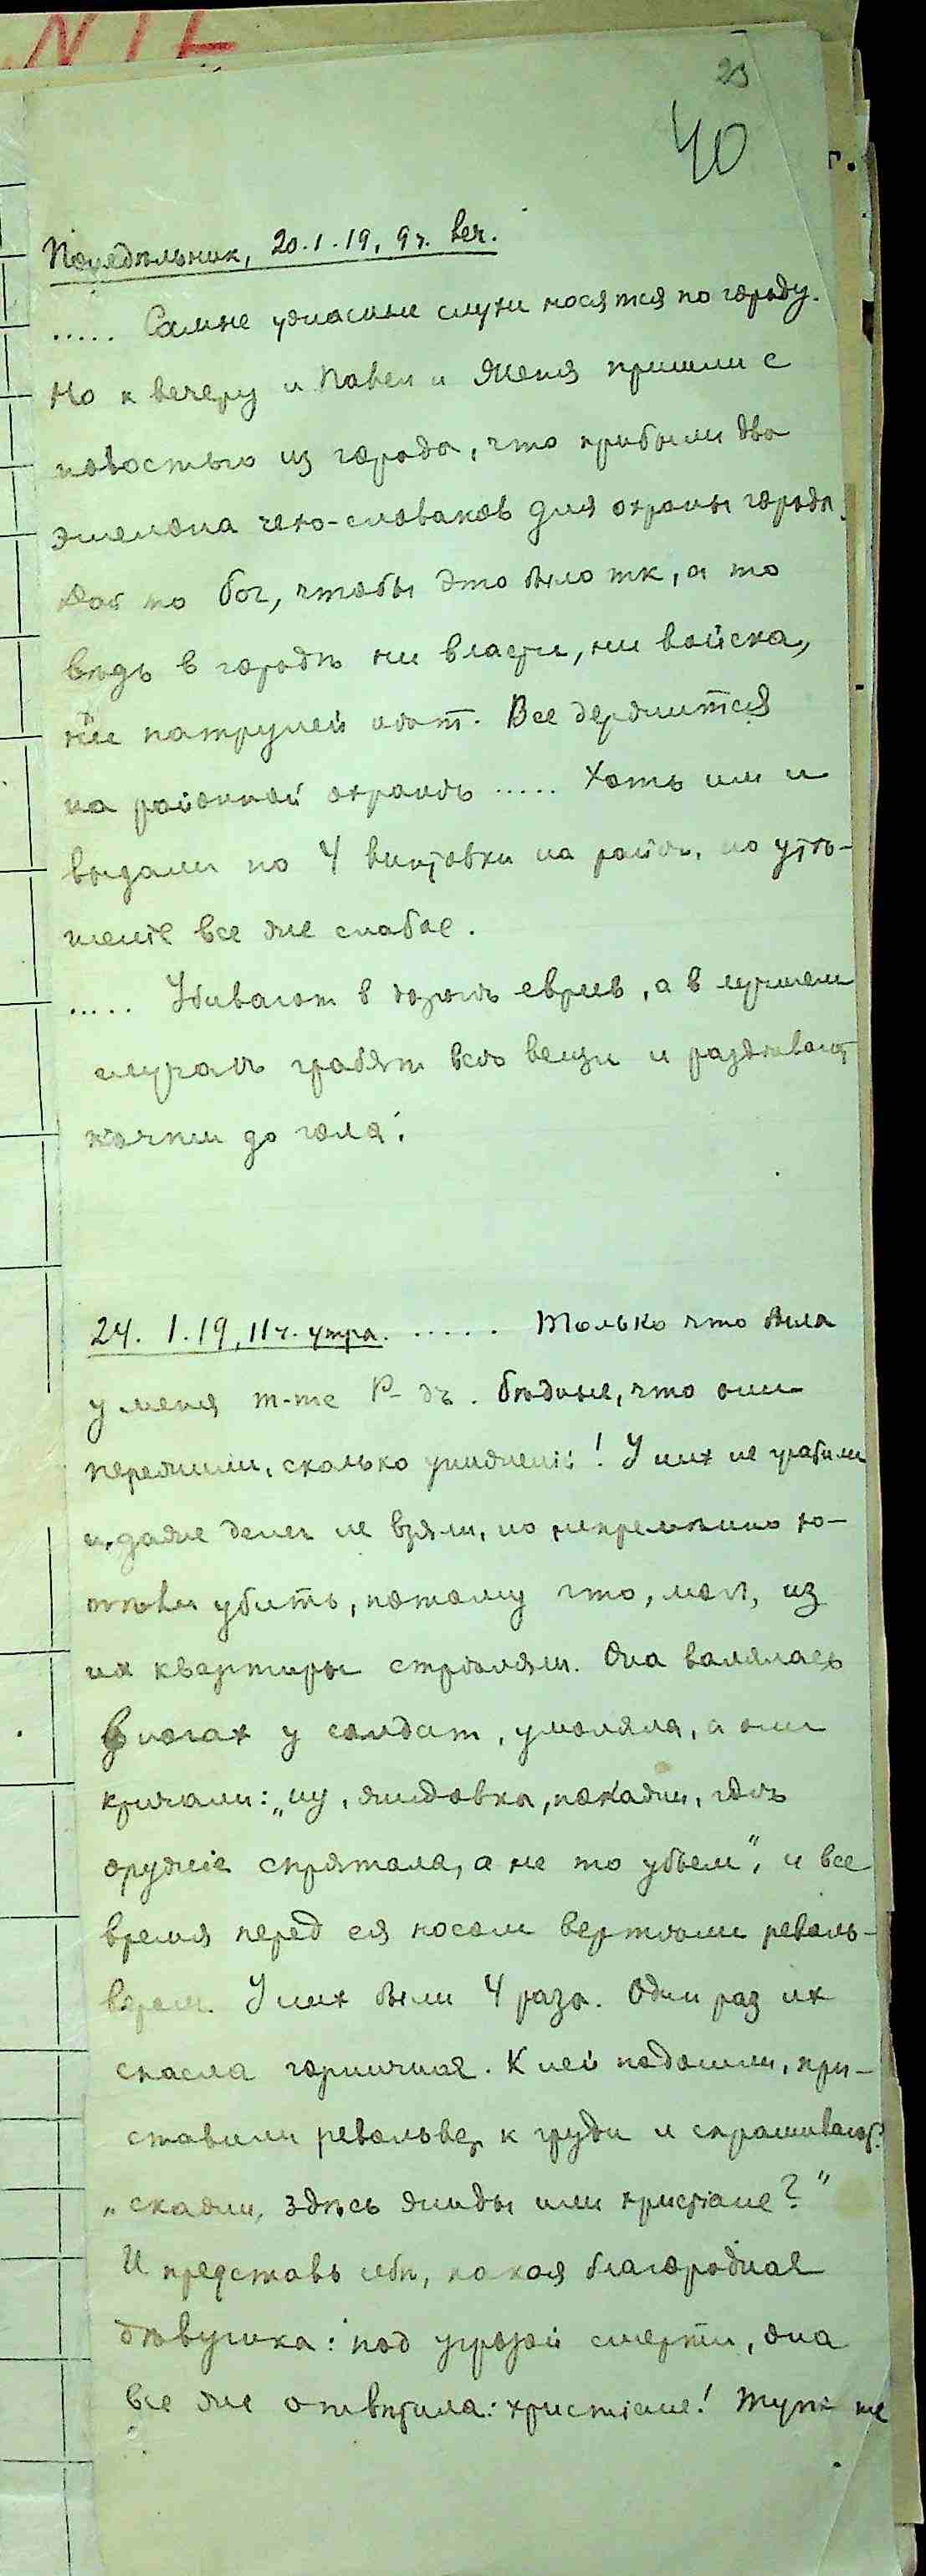 NIE
23
40
Понедѣльник, 20.1.19, 9 ч. веч.
..... Самые ужасные слухи носятся по городу.
Но к вечеру и Павел и Женя пришли с
новостью из города, что прибыли два
эшелона чехо-словаков для охраны города.
Дай то бог, чтобы это было так, а то
вѣдь в городѣ ни власти, ни войска,
ни патрулей нѣт. Все держится
на районной охранѣ ..... Хоть им и
выдали по 4 винтовки на район, но утѣ-
шеніе все же слабое.
..... Убивают в домѣ евреев, а в лучшем
случаѣ грабят всѣ вещи и раздѣвают
почти до гола.
24. 1. 19, 11 ч. утра. ..... Только что была
у меня m-me Р-дъ. Бѣдные, что они
пережили, сколько униженій! У них не грабили
и даже денег не взяли, но непремѣнно хо-
тѣли убить, потому что, мол, из
их квартиры стрѣляли. Она валялась
в ногах у солдат, умоляла, а они
кричали: „ну, жидовка, покажи, гдѣ
оружіе спрятала, а не то убьем", и все
время перед ея носом вертѣли револь-
вером. У них были 4 раза. Один раз их
спасла горничная. К ней подошли, при-
ставили револьвер к груди и спрашивают:
„скажи, здѣсь жиды или христіане?"
И представь себѣ, какая благородная
дѣвушка: под угрозой смерти, она
все же отвѣтила: христіане! Тут же